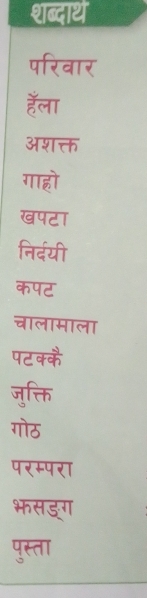 शब्दार्थ
परिवार
हेँला
अशक्त
गाह्रो
खपटा
निर्दयी
कपट
चालामाला
पटक्कै
जुक्ति
गोठ
परम्परा
झसङ्ग
पुस्ता